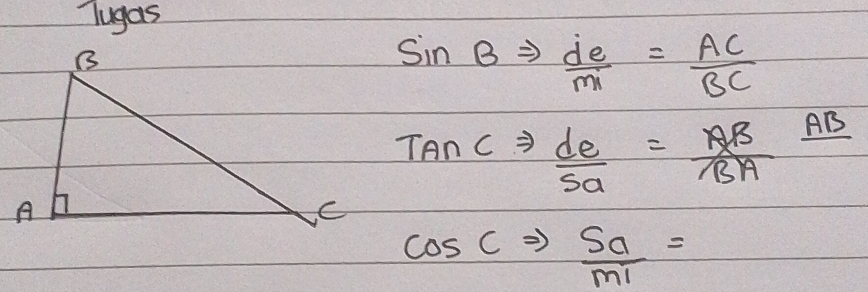 Tugas
B
A
C
Sin B ⇒ de/mi = AC/BC
TAn C ⇒ de/sa = AB/BA AB
cos C ⇒ Sa/mi =